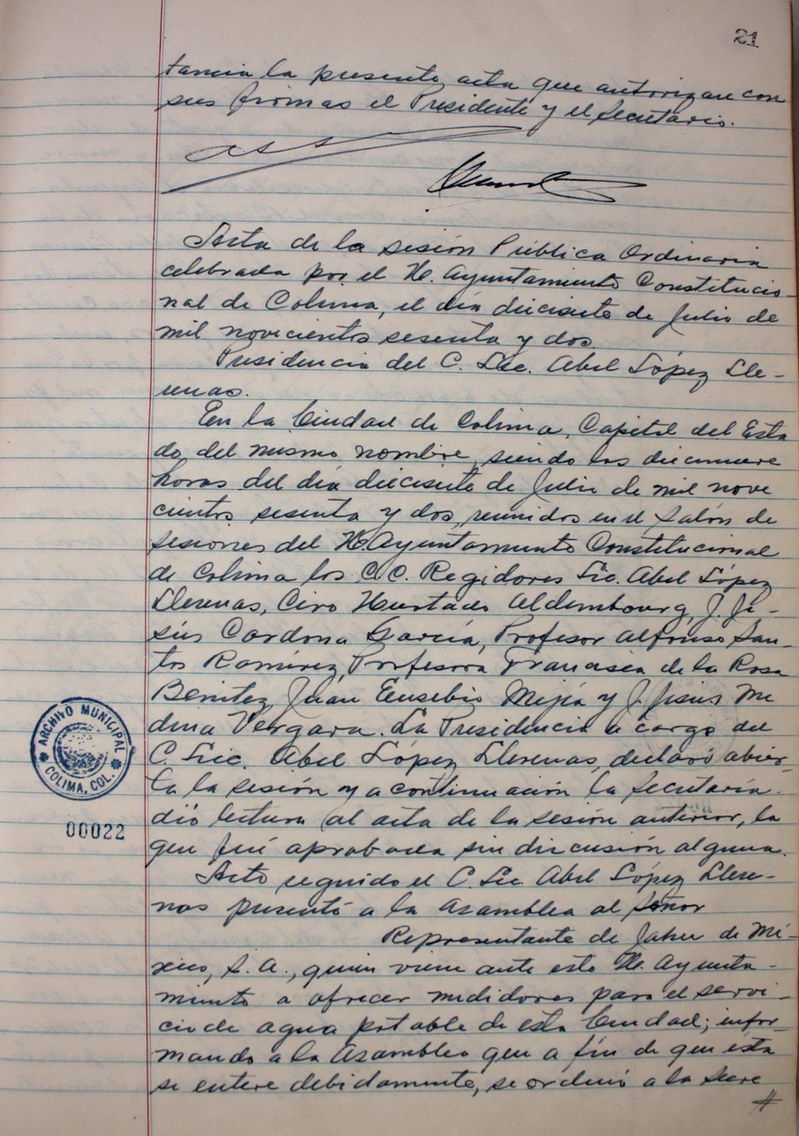 21
tancia la presente acta que autorizan con
sus firmas el Presidente y el Secretario.
Acta de la sesión Pública Ordinaria
celebrada por el H. Ayuntamiento Constitucio-
nal de Colima, el día diecisiete de Julio de
mil novecientos sesenta y dos.
Presidencia del C. Lic. Abel López Lle-
renas.
En la Ciudad de Colima, Capital del Esta
do del mismo nombre, siendo las diecinueve
horas del día diecisiete de Julio de mil nove
cientos sesenta y dos, reunidos en el Salón de
sesiones del H. Ayuntamiento Constitucional
de Colima los C.C. Regidores Lic. Abel López
Llerenas, Ciro Hurtado Aldembourg, J. Je-
sús Cardona García, Profesor Alfonso San-
tos Ramírez, Profesora Francisca de la Rosa
Benitez, Juan Eusebio Mejía y J. Jesús Me
dina Vergara. La Presidencia a cargo del
C. Lic. Abel López Llerenas, declaró abier-
ta la sesión y a continuación la Secretaría
dió lectura al acta de la sesión anterior, la
que fué aprobada sin discusión alguna.
Acto seguido el C. Lic. Abel López Llere-
nas presentó a la Asamblea al Señor
Representante de de Mé-
xico, S.A., quien viene ante este H. Ayunta-
miento a ofrecer medidores para el servi-
cio de agua potable de esta Ciudad; infor-
mando a la Asamblea que a fin de que ésta
se entere debidamente, se ordenó a la Secre
ARCHIVO MUNICIPAL
COLIMA, COL.
00022